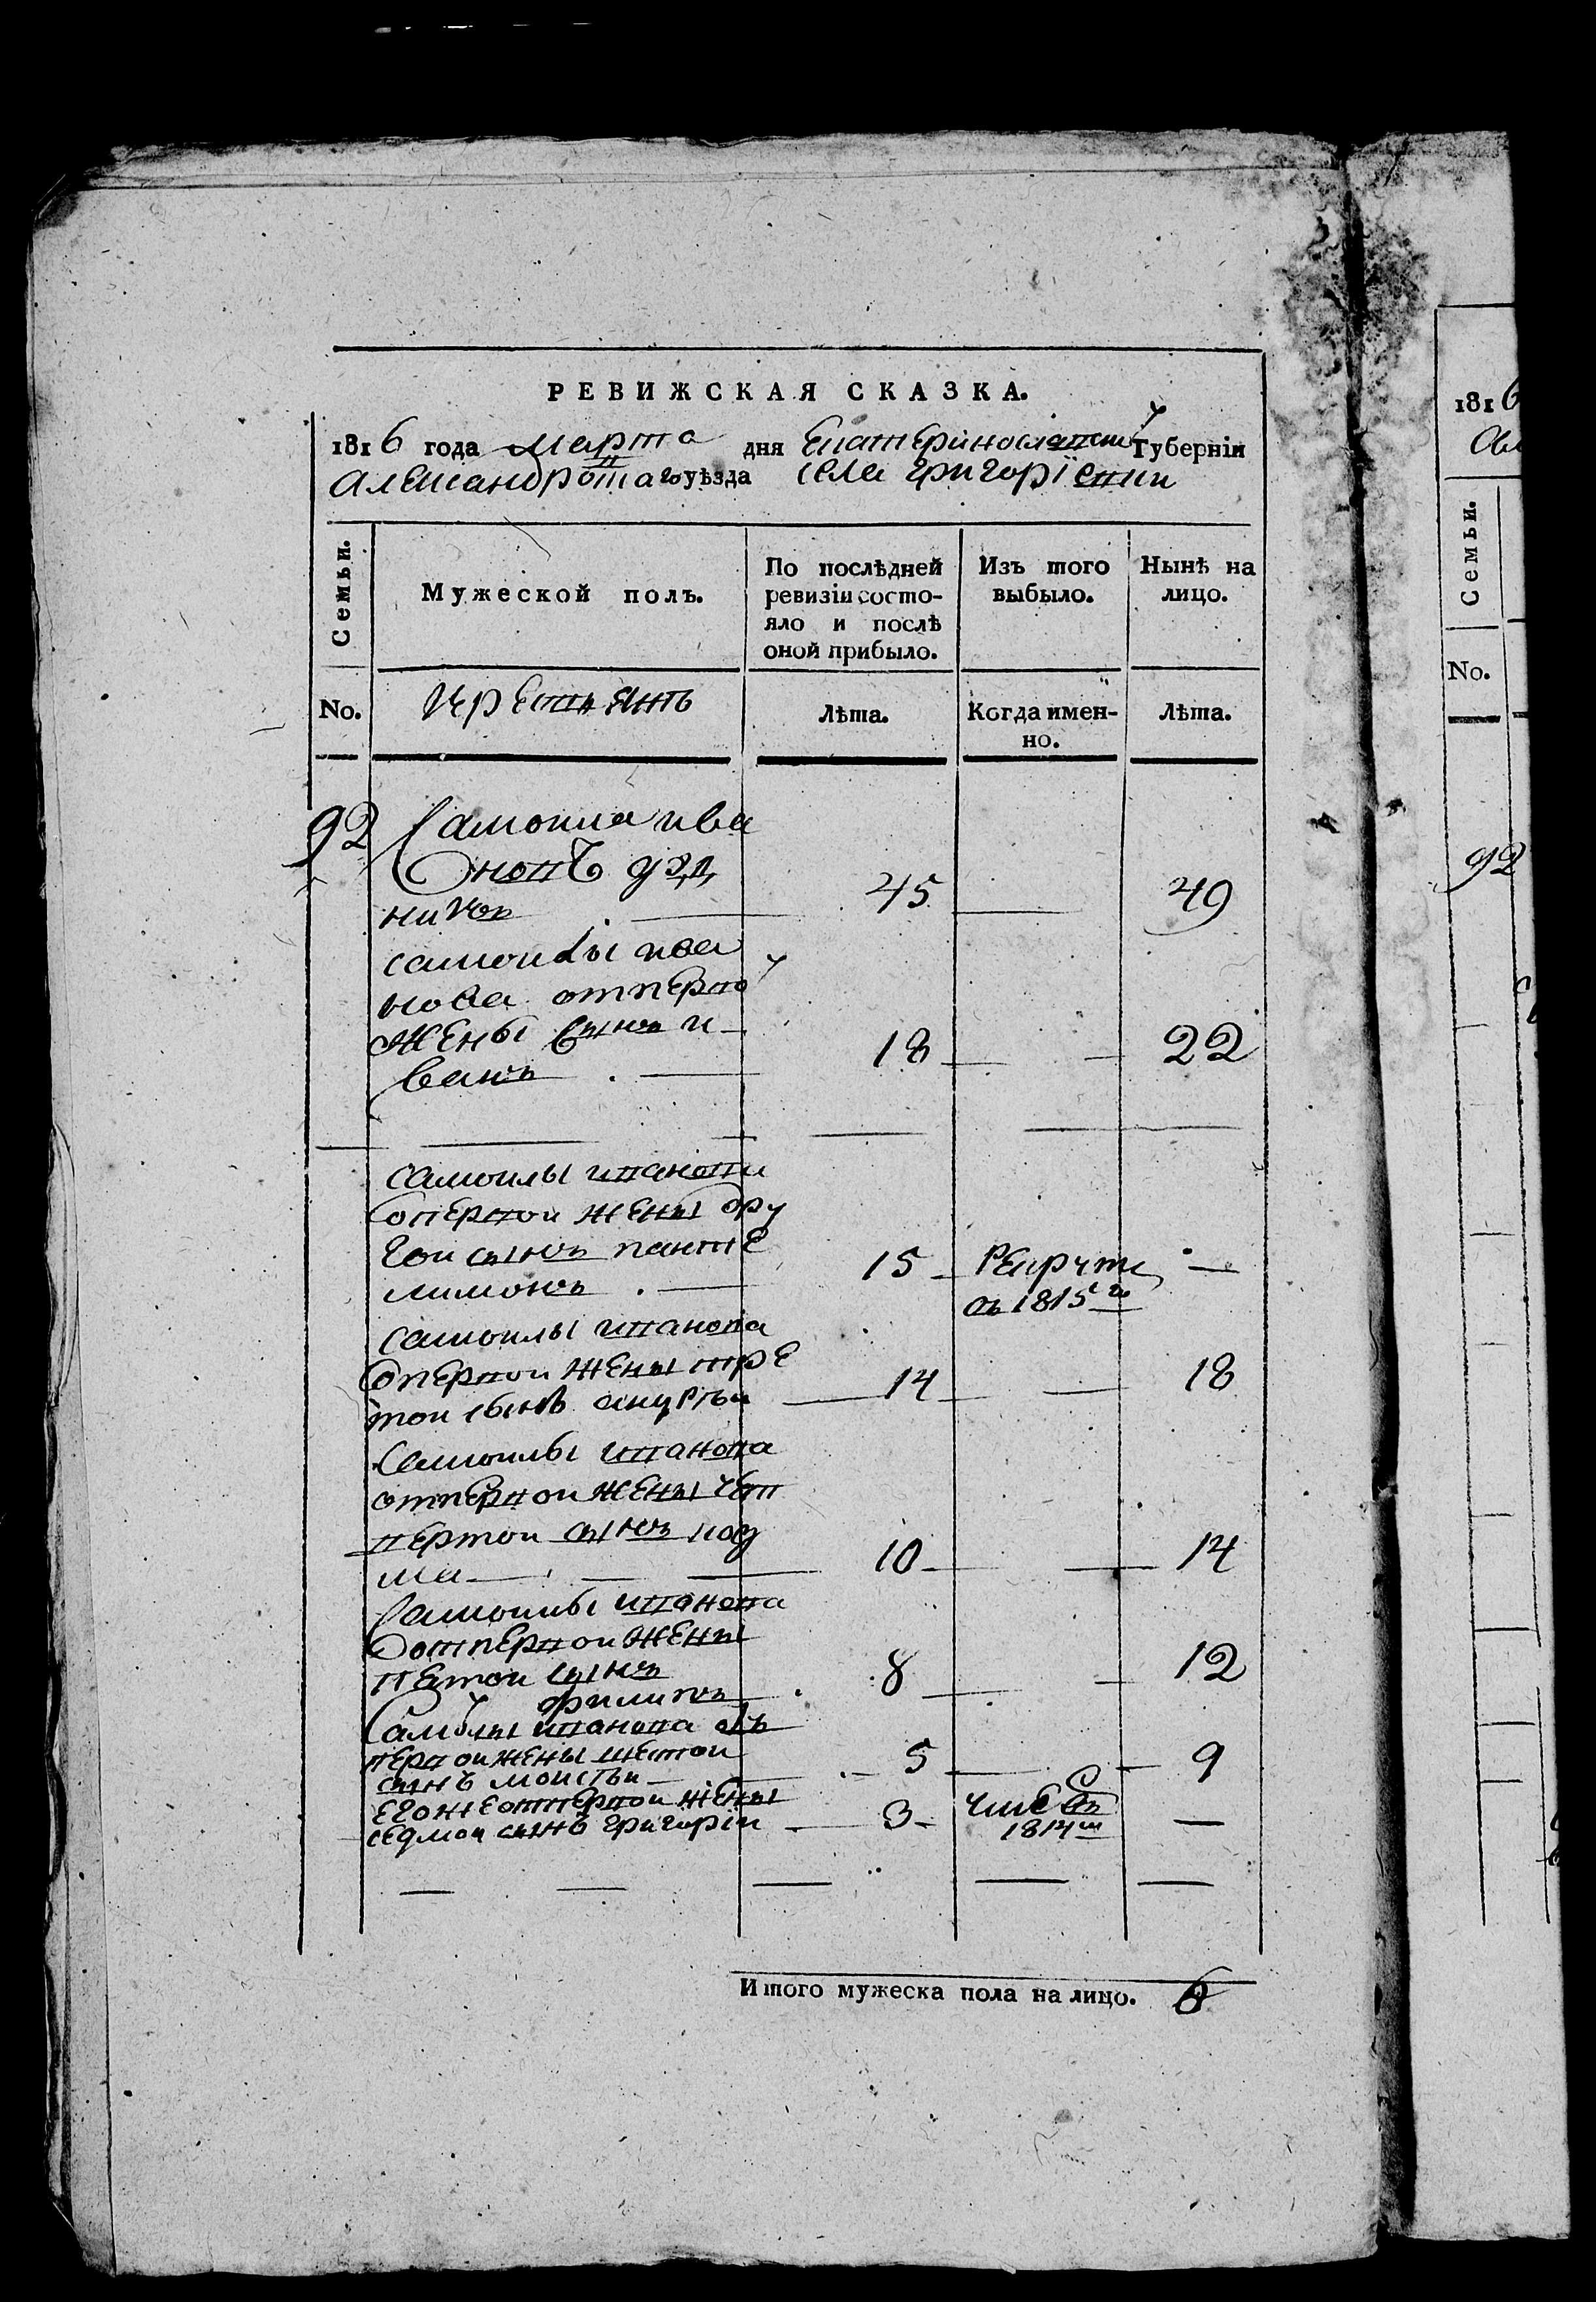 РЕВИЖСКАЯ СКАЗКА.
1816 года марта дня Екатеринославской Губерніи
Александровскаго уѣзда села григоріевки
Семьи.
Мужеской полъ.
По послѣдней ревизіи состояло и послѣ оной прибыло.
Изъ того выбыло.
Нынѣ на лицо.
No.
крестьянъ
Лѣта.
Когда именно.
Лѣта.
92 Самоила ива
новъ
никовъ 45 49
самоилы ива
нова отперво
жены сынъ и
ванъ 18 22
самоилы иванова
отпервои жены дру
гои сынъ панте
лимонъ 15 Рекруты
въ 1815 го
самоилы иванова
отпервои жены тре
тои сынъ 14 18
Самоилы иванова
отпервои жены чет
вертои сынъ коз
ма 10 14
Самоилы иванова
отпервои жены
пятои сынъ
филипъ 8 12
Самоилы иванова отъ
первои жены шестои
сынъ моисеи 5 9
егожеотпервои жены
седмои сынъ григореи 3
1814 м
Итого мужеска пола на лицо. 6
1816
Семьи.
No.
92